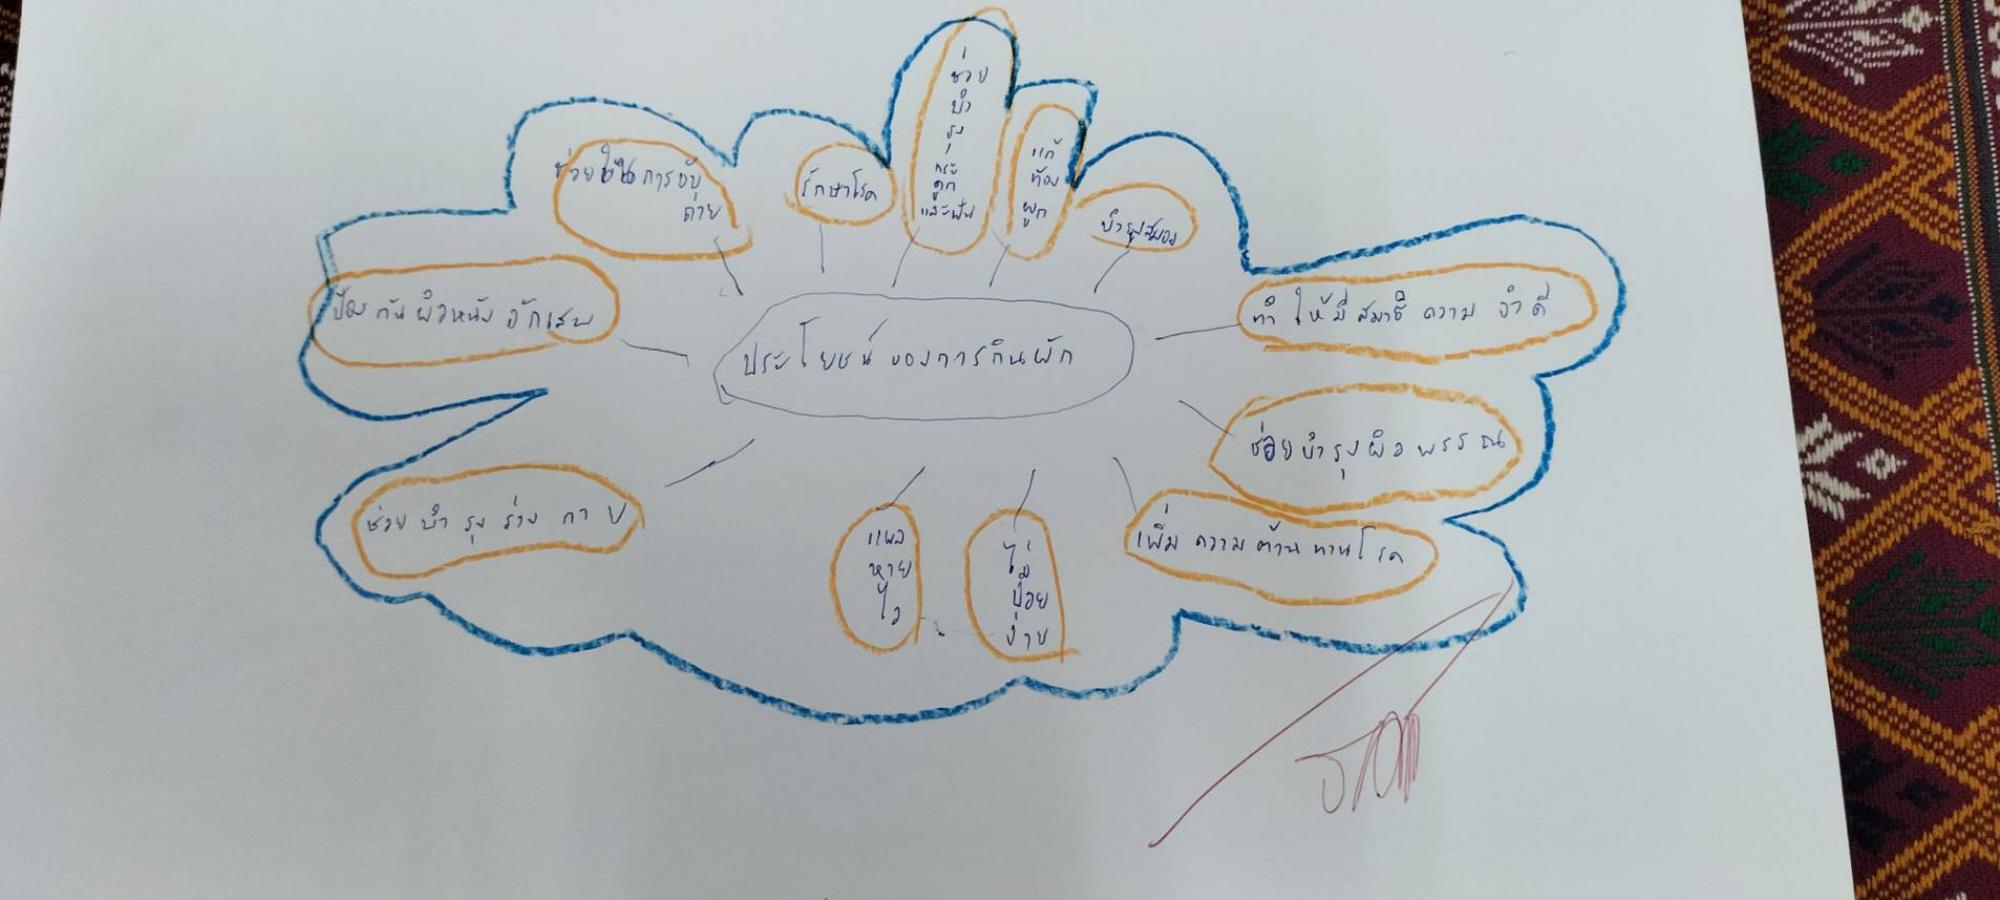 ช่วย
บำ
รุง
กระ
ดูก
และฟัน
แก้
ท้อง
ผูก
ช่วยในการขับ
ถ่าย
รักษาโรค
บำรุงสมอง
ป้องกันผิวหนังอักเสบ
ทำให้มีสมาธิความจำดี
ประโยชน์ของการกินผัก
ช่วยบำรุงผิวพรรณ
ช่วยบำรุงร่างกาย
แผล
หาย
ไว
ไม่
ป่วย
ง่าย
เพิ่มความต้านทานโรค